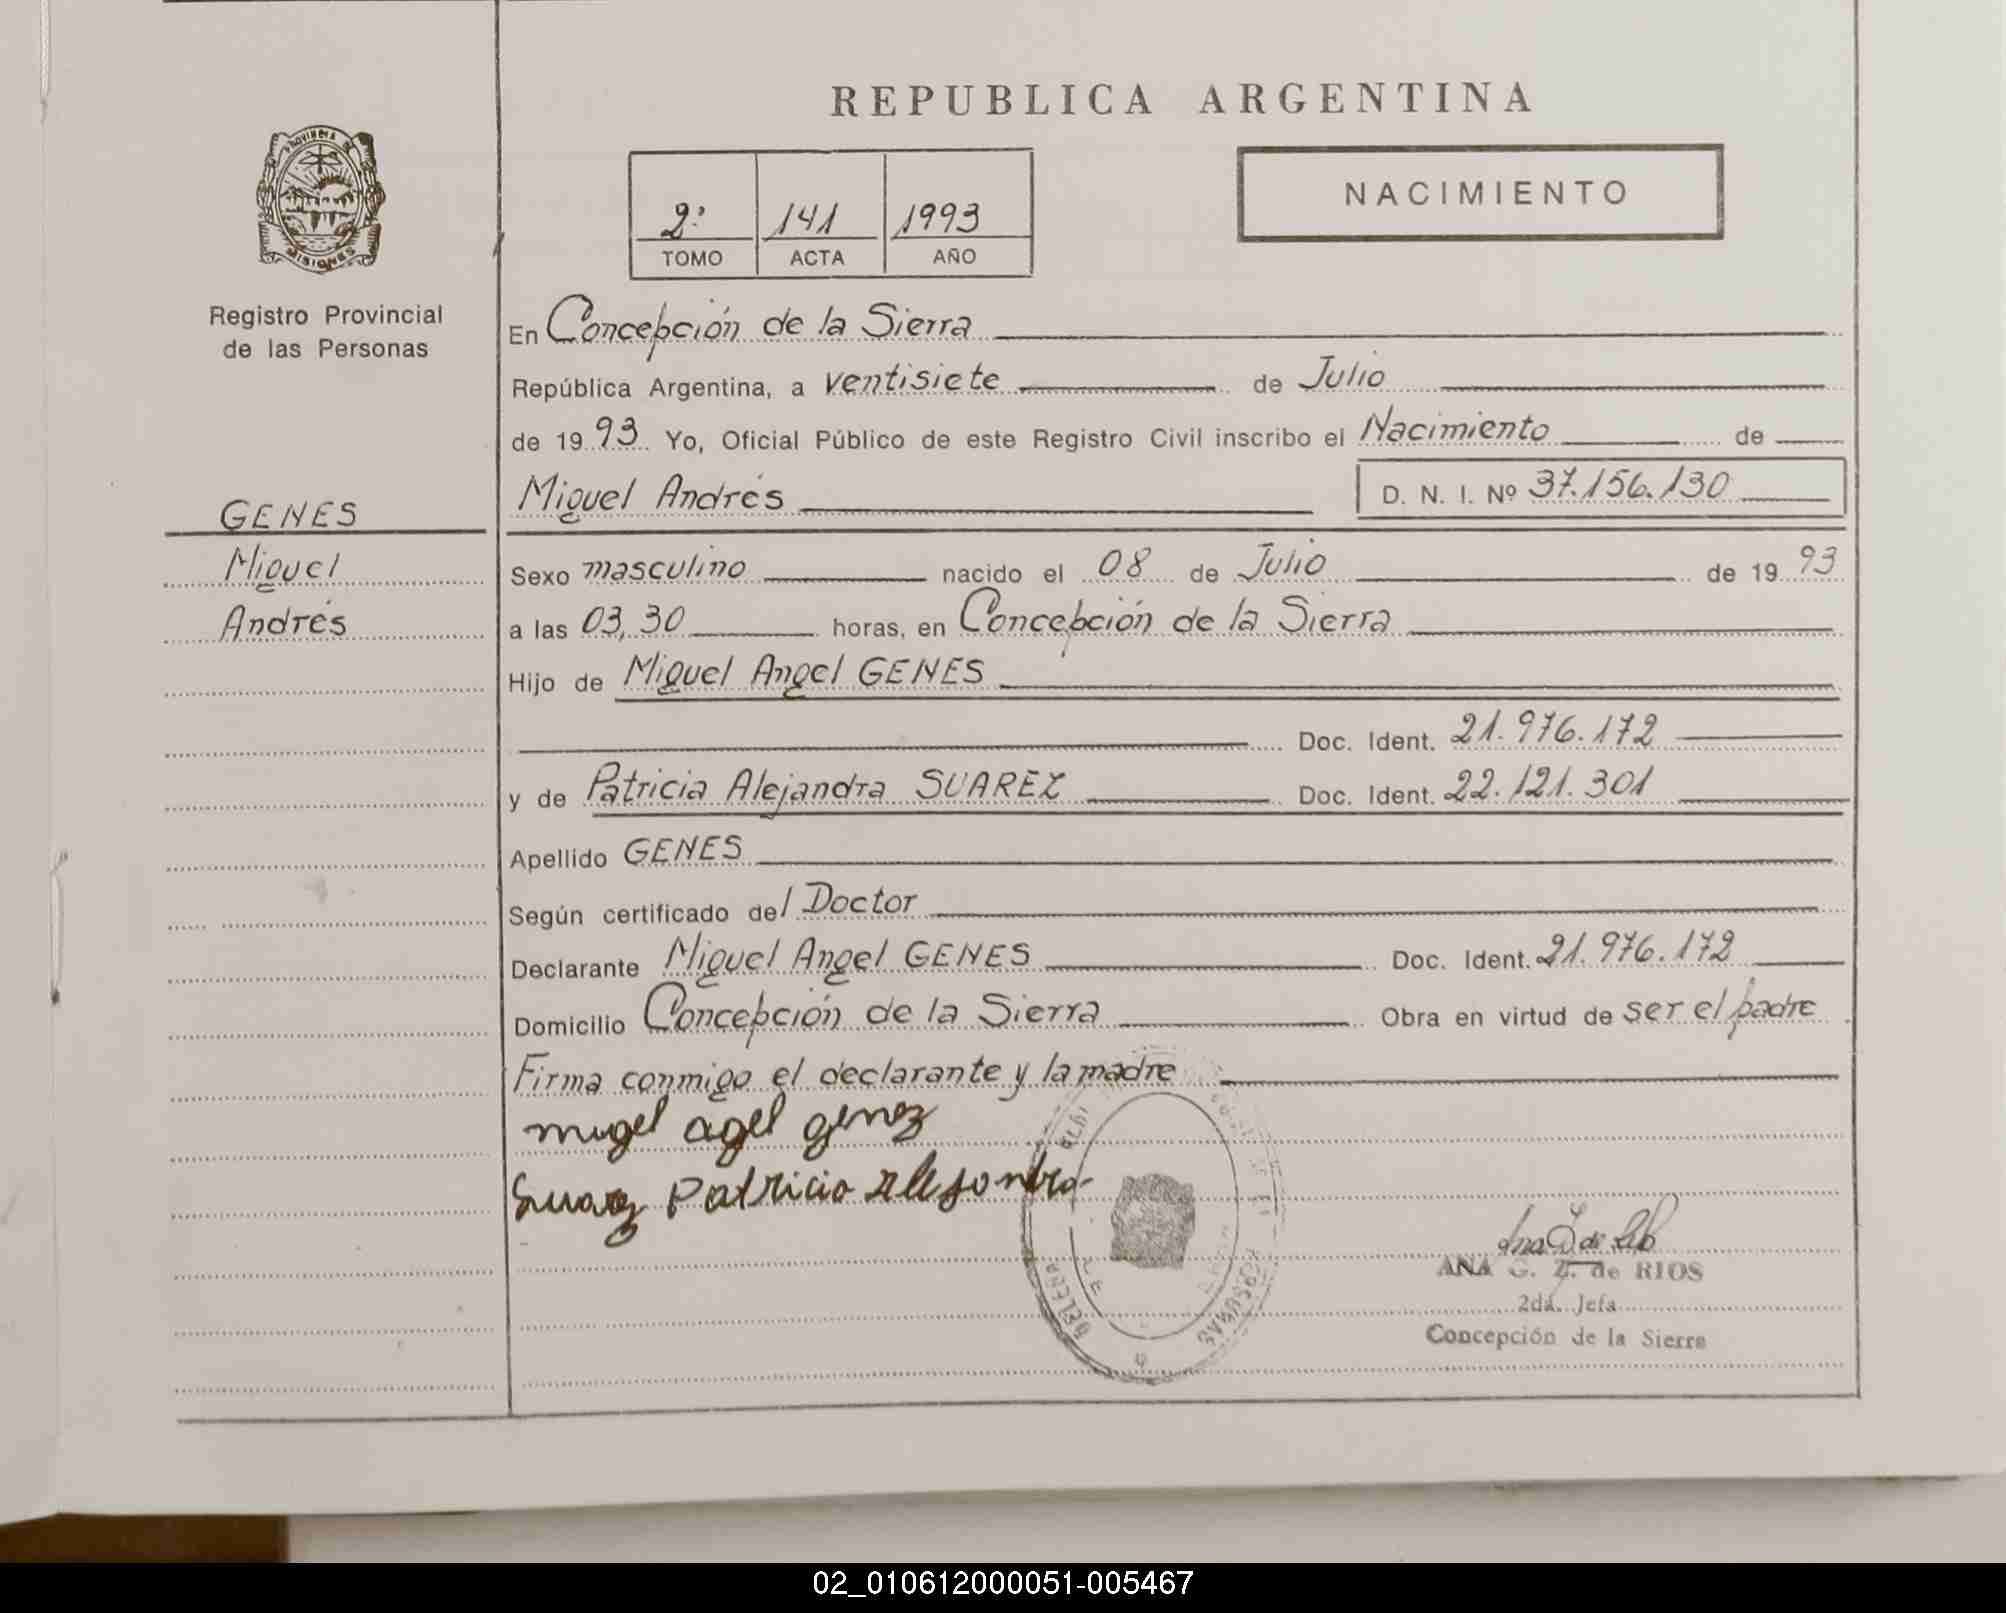 REPUBLICA ARGENTINA
PROVINCIA DE
MISIONES
2º 141 1993
TOMO ACTA AÑO
NACIMIENTO
Registro Provincial
de las Personas
GENES
Miguel
Andrés
En Concepción de la Sierra
República Argentina, a ventisiete de Julio
de 1993 Yo, Oficial Público de este Registro Civil inscribo el Nacimiento de
Miguel Andrés D. N. I. Nº 37.156.130
Sexo masculino nacido el 08 de Julio de 1993
a las 03,30 horas, en Concepción de la Sierra
Hijo de Miguel Angel GENES
Doc. Ident. 21.976.172
y de Patricia Alejandra SUAREZ Doc. Ident. 22.121.301
Apellido GENES
Según certificado del Doctor
Declarante Miguel Angel GENES Doc. Ident. 21.976.172
Domicilio Concepción de la Sierra Obra en virtud de ser el padre
Firma conmigo el declarante y la madre
migel agel genez
Suarez Patricia Alejandra
ANA G. Z. de RIOS
2da. Jefa
Concepción de la Sierra
02_010612000051-005467